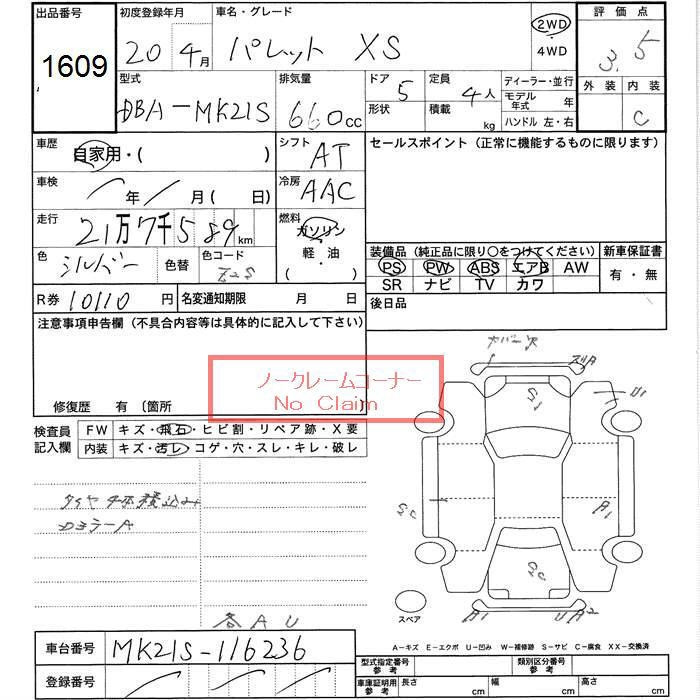 出品番号
1609
初度登録年月
20年 4月
車名・グレード
パレット XS
2WD
・
4WD
評価点
3.5
外装 内装
C
型式
DBA-MK21S
排気量
660cc
ドア
5
形状
定員
4人
積載
kg
ディーラー・並行
モデル年式 年
ハンドル 左・右
車歴
自家用・( )
シフト
AT
セールスポイント (正常に機能するものに限ります)
車検
年 月(日)
冷房
AAC
走行
21万7千589km
燃料
ガソリン
・
軽・油
・
色
シルバー
色替
色コード
Z2S
装備品 (純正品に限り○をつけてください)
PS PW ABS エアB AW
SR ナビ TV カワ
新車保証書
有・無
R券 10110円
名変通知期限 月 日
後日品
注意事項申告欄 (不具合内容等は具体的に記入して下さい)
ノークレームコーナー
No Claim
修復歴 有 〔箇所 〕
検査員
記入欄
FW キズ・飛石・ヒビ割・リペア跡・X要
内装 キズ・汚レ・コゲ・穴・スレ・キレ・破レ
タイヤ4本積込み
Dミラー A
各 A U
カバー欠
ズA
U1
S1
S2
A1
S2
A1
U A2
スペア
A-キズ E-エクボ U-凹み W-補修跡 S-サビ C-腐食 XX-交換済
車台番号
MK21S-116236
登録番号
型式指定番号
参考
類別区分番号
参考
車庫証明用
参考
長さ cm
幅 cm
高さ cm